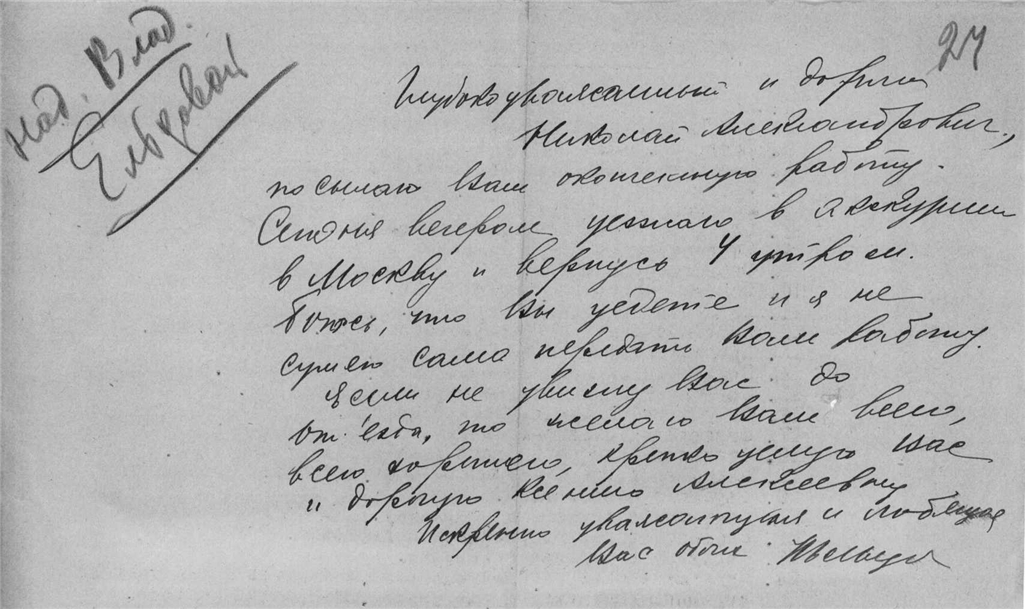 Над. Влад.
Ельцовой
27
Глубокоуважаемый и дорогой
Николай Александрович,
посылаю Вам оконченную работу.
Сегодня вечером уезжаю в экскурсию
в Москву и вернусь 4 утром.
Боюсь, что Вы уедете и я не
сумею сама передать Вам работу.
Если не увижу Вас до
от'езда, то желаю Вам всего,
всего хорошего, крепко целую Вас
и дорогую Ксению Алексеевну
Искренно уважающая и любящая
Вас обоих